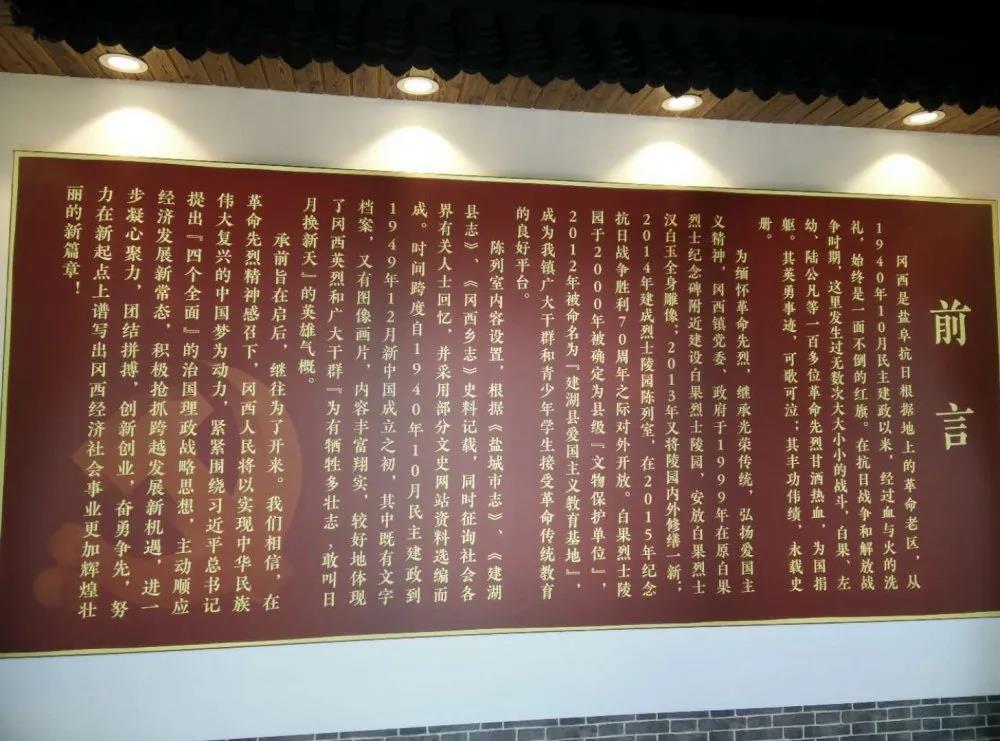 前言
冈西是盐阜抗日根据地上的革命老区，从
1940年10月民主建政以来，经过血与火的洗
礼，始终是一面不倒的红旗。在抗日战争和解放战
争时期，这里发生过无数次大大小小的战斗，白果、左
幼、陆公凡等一百多位革命先烈甘洒热血，为国捐
躯。其英勇事迹，可歌可泣；其丰功伟绩，永载史
册。
为缅怀革命先烈，继承光荣传统，弘扬爱国主
义精神，冈西镇党委、政府于1999年在原白果
烈士纪念碑附近建设白果烈士陵园，安放白果烈士
汉白玉全身雕像；2013年又将陵园内外修缮一新；
2014年建成烈士陵园陈列室，在2015年纪念
抗日战争胜利70周年之际对外开放。白果烈士陵
园于2000年被确定为县级『文物保护单位』，
2012年被命名为『建湖县爱国主义教育基地』，
成为我镇广大干群和青少年学生接受革命传统教育
的良好平台。
陈列室内容设置，根据《盐城市志》、《建湖
县志》、《冈西乡志》史料记载，同时征询社会各
界有关人士回忆，并采用部分文史网站资料选编而
成。时间跨度自1940年10月民主建政到
1949年12月新中国成立之初，其中既有文字
档案，又有图像画片，内容丰富翔实，较好地体现
了冈西英烈和广大干群『为有牺牲多壮志，敢叫日
月换新天』的英雄气概。
承前旨在启后，继往为了开来。我们相信，在
革命先烈精神感召下，冈西人民将以实现中华民族
伟大复兴的中国梦为动力，紧紧围绕习近平总书记
提出『四个全面』的治国理政战略思想，主动顺应
经济发展新常态，积极抢抓跨越发展新机遇，进一
步凝心聚力，团结拼搏，创新创业，奋勇争先，努
力在新起点上谱写出冈西经济社会事业更加辉煌壮
丽的新篇章！